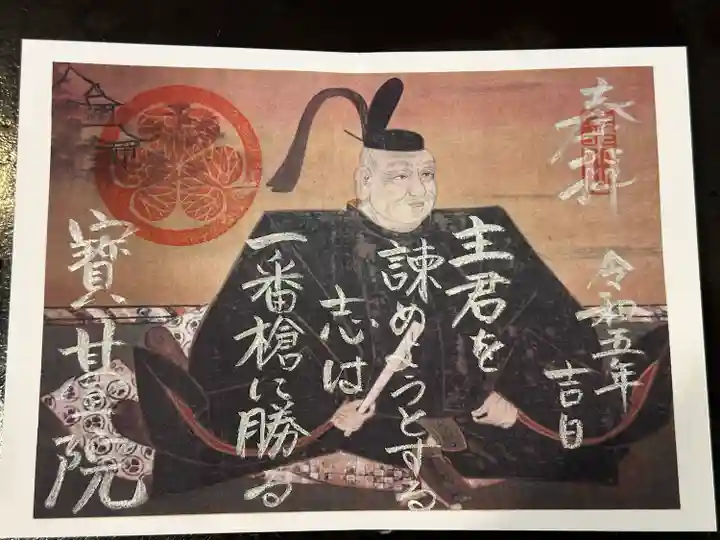 奉拝
令和五年
吉日
主君を
諫めようとする
志は
一番槍に勝る
寳甘露院